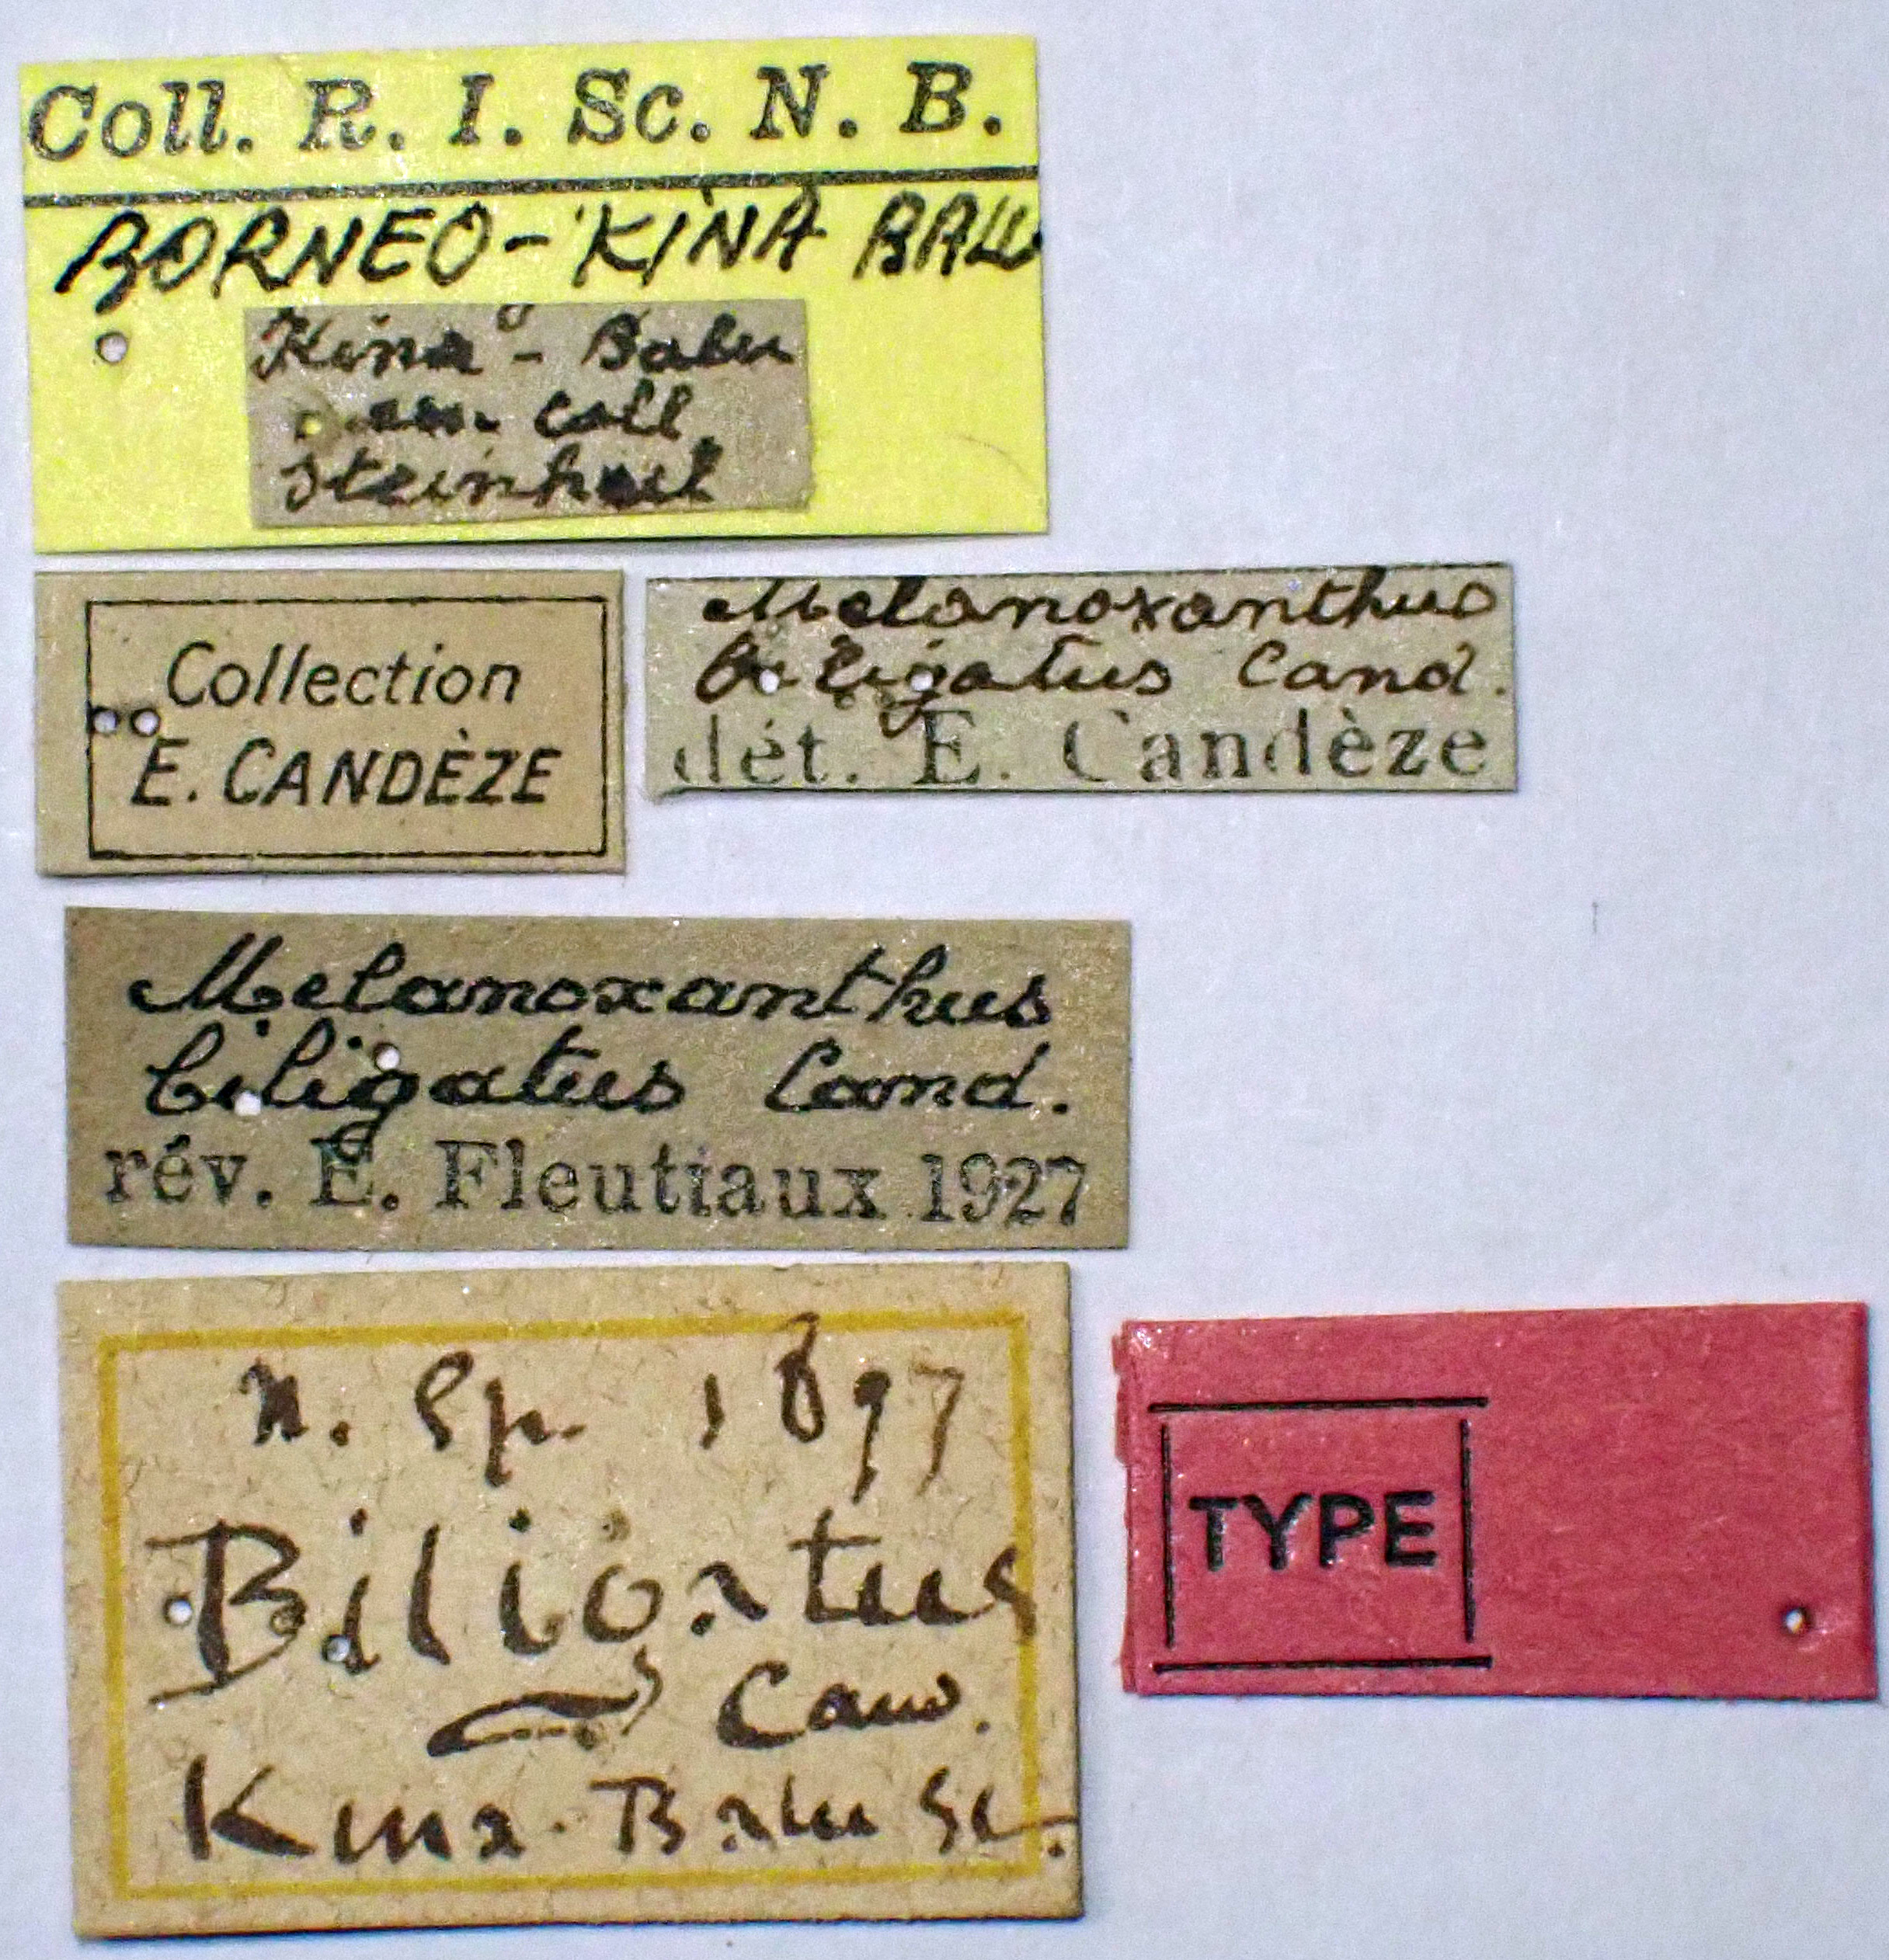 Coll. R. I. Sc. N. B.
BORNEO-KINA BALU
Kina-Balu
coll
Steinheil
Collection
E. CANDÈZE
Melanoxanthus
biligatus Cand.
dét. E. Candèze
Melanoxanthus
biligatus Cand.
rév. E. Fleutiaux 1927
n. sp. 1897
Biligatus
Cand.
Kina-Balu
TYPE